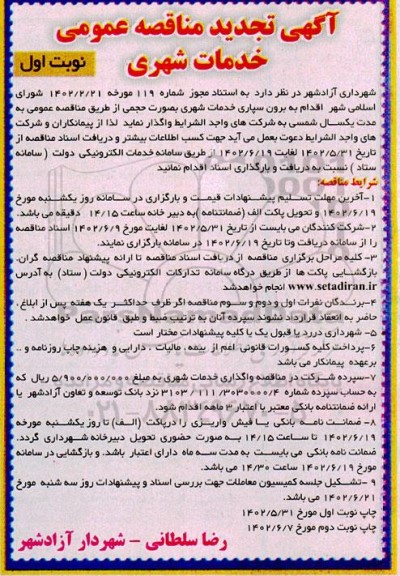 آگهی تجدید مناقصه عمومی
خدمات شهری
نوبت اول
شهرداری آزادشهر در نظر دارد به استناد مجوز شماره ۱۱۹ مورخه ۱۴۰۲/۲/۲۱ شورای
اسلامی شهر اقدام به برون سپاری خدمات شهری بصورت حجمی از طریق مناقصه عمومی به
مدت یکسال شمسی به شرکت های واجد الشرایط واگذار نماید لذا از پیمانکاران و شرکت
های واجد الشرایط دعوت بعمل می آید جهت کسب اطلاعات بیشتر و دریافت اسناد مناقصه از
تاریخ ۱۴۰۲/۵/۳۱ لغایت ۱۴۰۲/۶/۱۹ از طریق سامانه خدمات الکترونیکی دولت ( سامانه
ستاد ) نسبت به دریافت و بارگذاری اسناد اقدام نمائید
شرایط مناقصه:
۱-آخرین مهلت تسلیم پیشنهادات قیمت و بارگزاری در سامانه روز یکشنبه مورخ
۱۴۰۲/۶/۱۹ و تحویل پاکت الف (ضمانتنامه )به دبیر خانه ساعت ۱۴/۱۵ دقیقه می باشد.
۲-شرکت کنندگان می بایست از تاریخ ۱۴۰۲/۵/۳۱ لغایت مورخ ۱۴۰۲/۶/۹ اسناد مناقصه
را از سامانه دریافت وتا تاریخ ۱۴۰۲/۶/۱۹ در سامانه بارگزاری نمایند.
۳-کلیه مراحل برگزاری مناقصه از دریافت اسناد مناقصه تا ارائه پیشنهاد مناقصه گران.
بازگشایی پاکت ها از طریق درگاه سامانه تدارکات الکترونیکی دولت ( ستاد) به آدرس
www.setadiran.ir انجام خواهدشد
۴-برندگان نفرات اول و دوم و سوم مناقصه اگر ظرف حداکثر یک هفته پس از ابلاغ ،
حاضر به انعقاد قرارداد نشوند سپرده آنان به ترتیب ضبط و طبق قانون عمل خواهدشد .
۵- شهرداری دررد یا قبول یک یا کلیه پیشنهادات مختار است
۶-پرداخت کلیه کسورات قانونی اعم از بیمه ، مالیات ، دارایی و هزینه چاپ روزنامه و ..
برعهده پیمانکار می باشد
۷-سپرده شرکت در مناقصه واگذاری خدمات شهری به مبلغ ۵/۹۰۰/۰۰۰/۰۰۰ ریال که
به حساب سپرده شماره ۳۱۰۳/۱۱۱/۳۰۳۰۰۰/۴ نزد بانک توسعه و تعاون آزادشهر یا
ارائه ضمانتنامه بانکی معتبر با اعتبار ۳ ماهه اقدام شود.
۸- ضمانت نامه بانکی یا فیش واریزی را درپاکت (الف) تا روز یکشنبه مورخه
۱۴۰۲/۶/۱۹ تا ساعت ۱۴/۱۵ به صورت حضوری تحویل دبیرخانه شهرداری گردد.
ضمانت نامه بانکی می بایست به مدت سه ماه دارای اعتبار باشد. و بازگشایی در سامانه
مورخ ۱۴۰۲/۶/۱۹ ساعت ۱۴/۳۰ می باشد.
۹ -تشکیل جلسه کمیسیون معاملات جهت بررسی اسناد و پیشنهادات روز سه شنبه مورخ
۱۴۰۲/۶/۲۱ می باشد.
چاپ نوبت اول مورخ ۱۴۰۲/۵/۳۱
چاپ نوبت دوم مورخ ۱۴۰۲/۶/۷
رضا سلطانی - شهردار آزادشهر